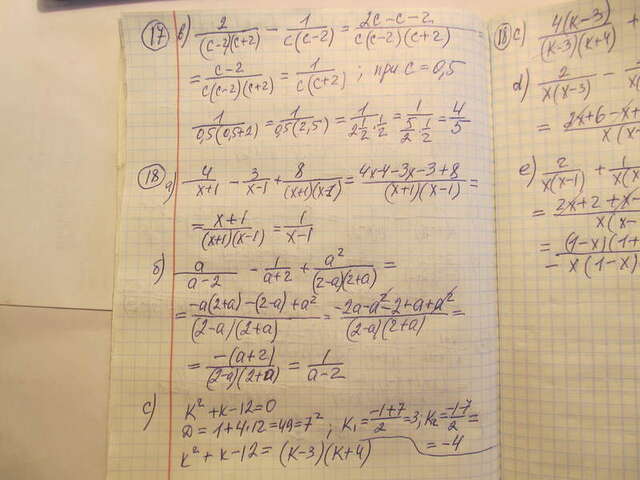 17 в) 2/((c-2)(c+2)) - 1/(c(c-2)) = (2c-c-2)/(c(c-2)(c+2)) =
= (c-2)/(c(c-2)(c+2)) = 1/(c(c+2)) ; при c = 0,5
1/(0,5(0,5+2)) = 1/(0,5(2,5)) = 1/(2 1/2 · 1/2) = 1/(5/2 · 1/2) = 4/5
18 а) 4/(x+1) - 3/(x-1) + 8/((x+1)(x-1)) = (4x-4-3x-3+8)/((x+1)(x-1)) =
= (x+1)/((x+1)(x-1)) = 1/(x-1)
б) a/(a-2) - 1/(a+2) + a²/((2-a)(2+a)) =
= (-a(2+a)-(2-a)+a²)/((2-a)(2+a)) = (-2a-a²-2+a+a²)/((2-a)(2+a)) =
= -(a+2)/((2-a)(2+a)) = 1/(a-2)
c) k²+k-12=0
D = 1+4·12=49=7² ; K₁=(-1+7)/2=3; K₂=(-1-7)/2=
= -4
k²+k-12= (k-3)(k+4)
18 c) 4(k-3)/((k-3)(k+4) +
d) 2/(x(x-3)) -
= (2x+6-x+
e) 2/(x(x-1)) + 1/
= (2x+2+x-
= (1-x)(1+
- x(1-x)